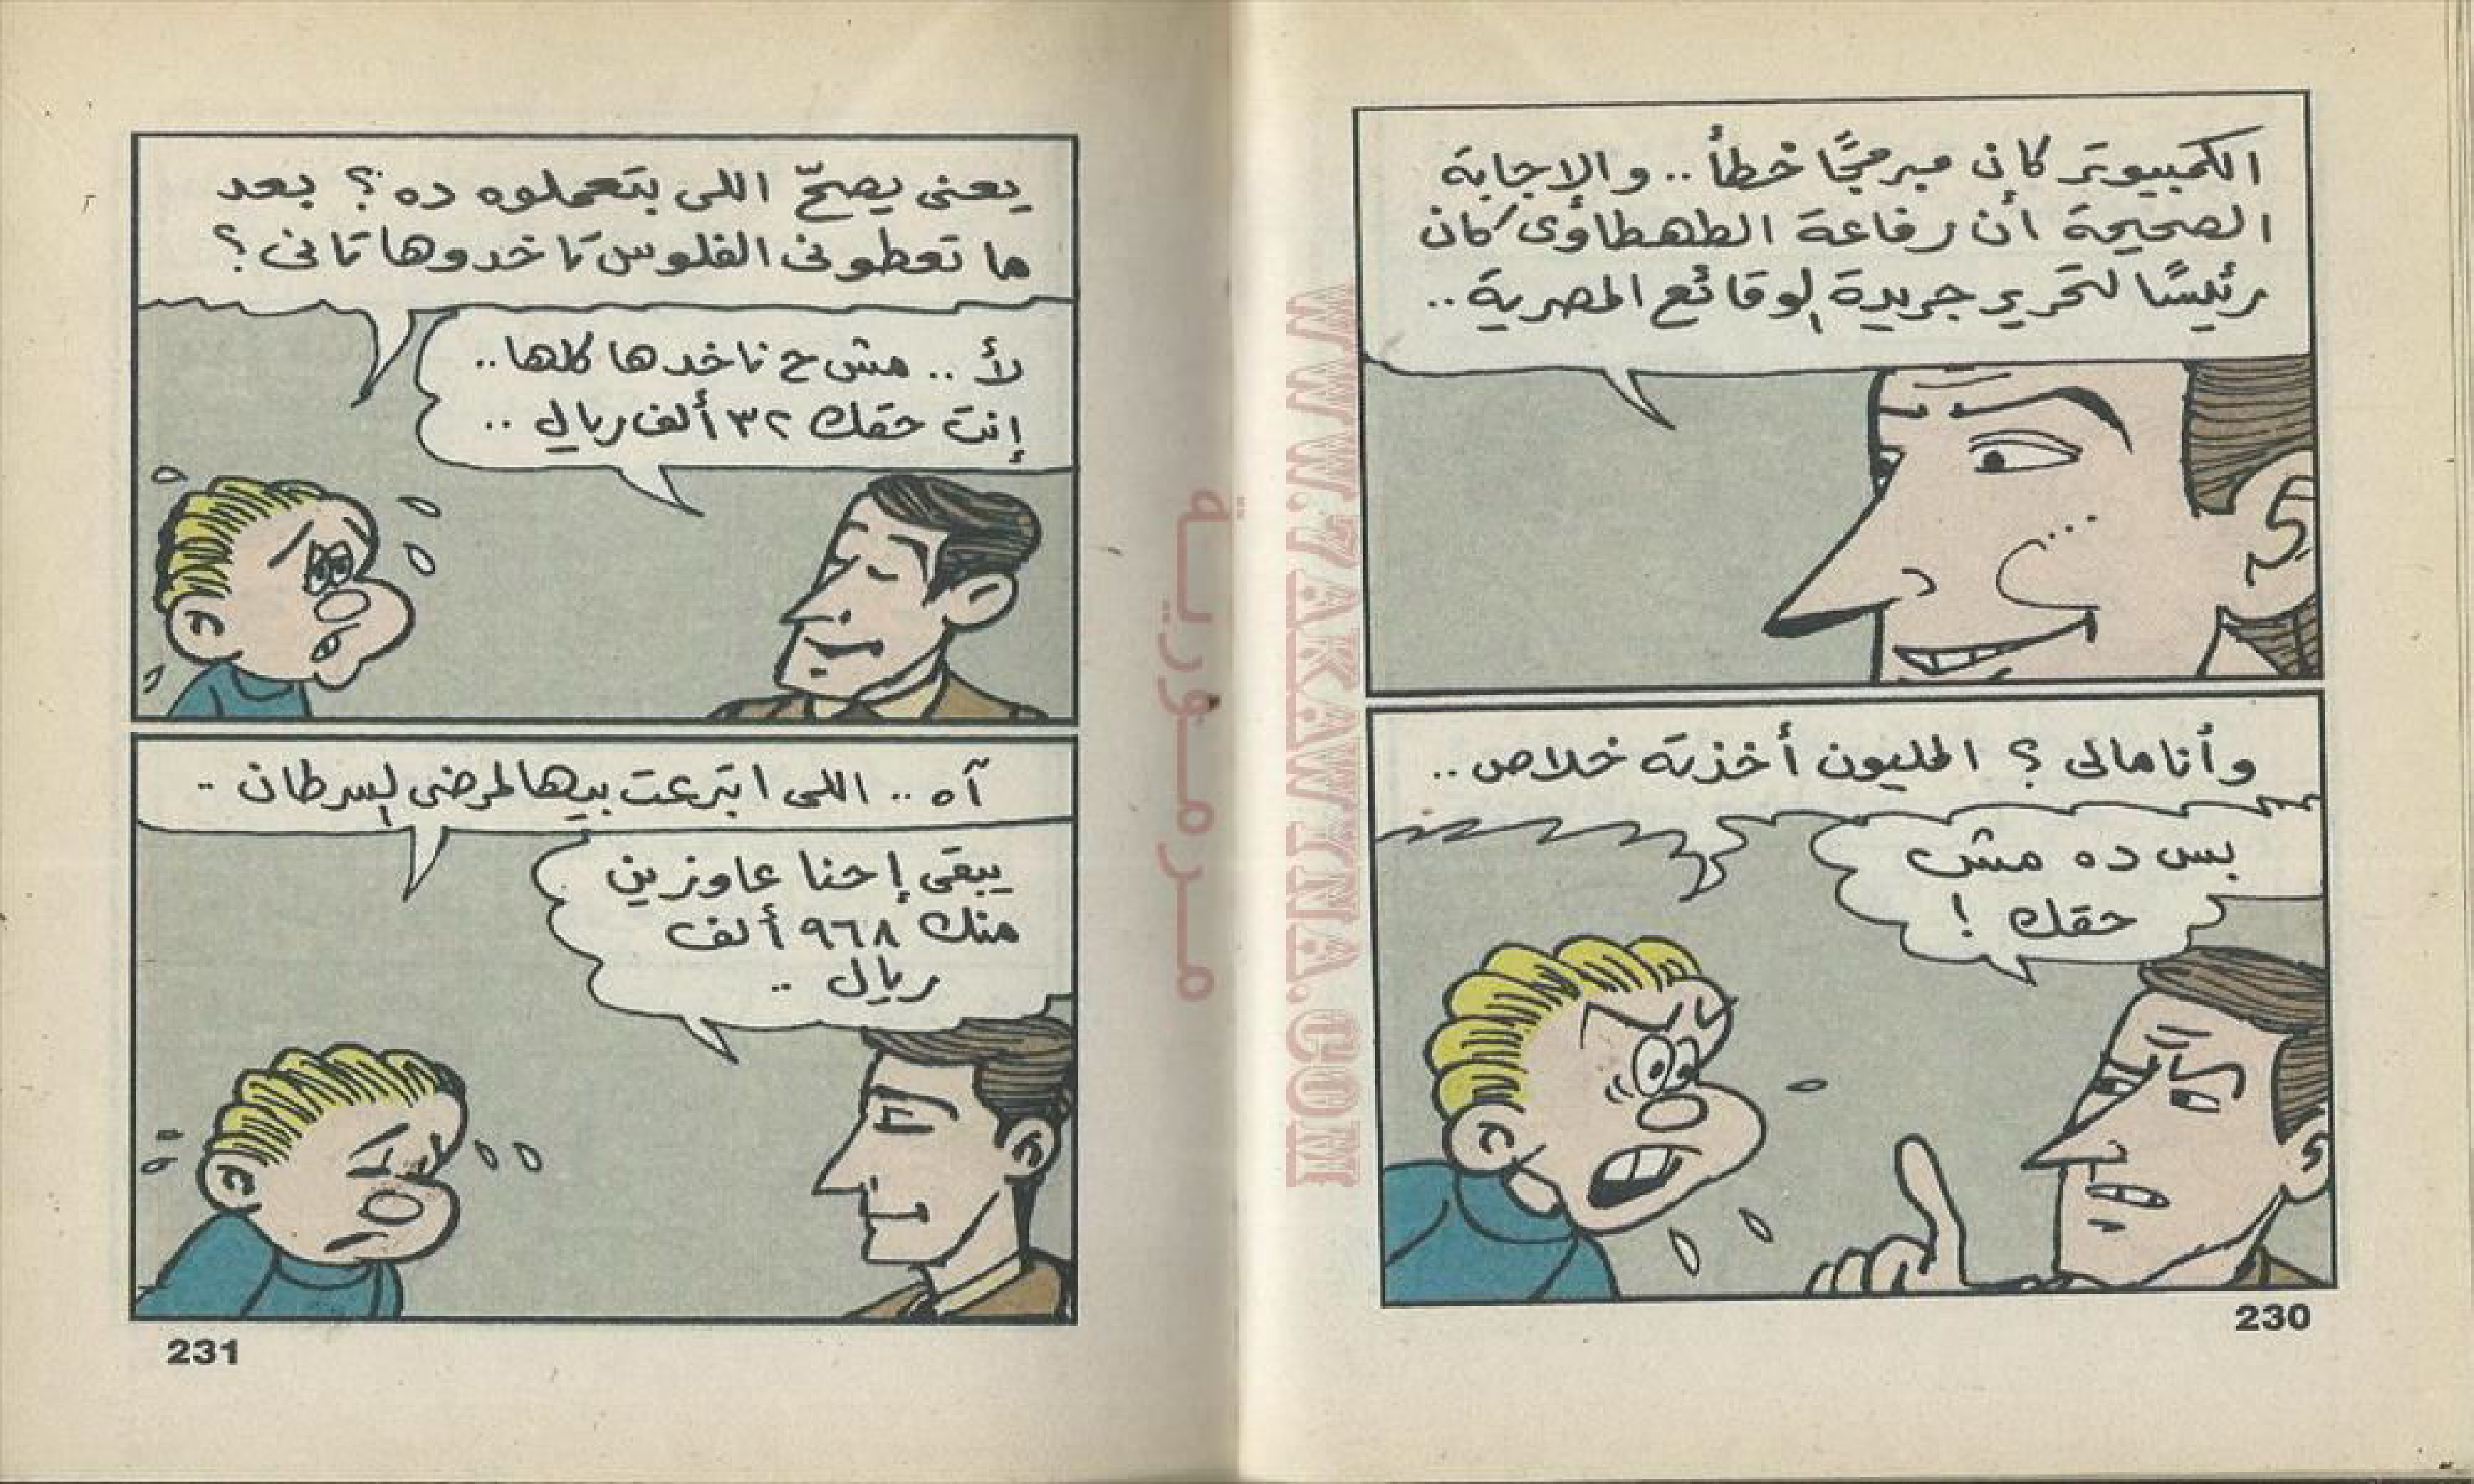 الكمبيوتر كان مبرمجًا خطأ .. والإجابة
الصحيحة أن رفاعة الطهطاوى كان
رئيسًا لتحرير جريدة الوقائع المصرية ..
وأنا مالى ؟ المليون أخذته خلاص ..
بس ده مش
حقك !
230
يعنى يصحّ اللى بتعملوه ده ؟ بعد
ما تعطونى الفلوس تاخدوها تانى ؟
لأ .. مش ح ناخدها كلها ..
إنت حقك ٣٢ ألف ريال ..
آه .. اللى اتبرعت بيها لمرضى السرطان ..
يبقى إحنا عاوزين
منك ٩٦٨ ألف
ريال ..
231
مرمورية
WWW.7AKAWYNA.COM